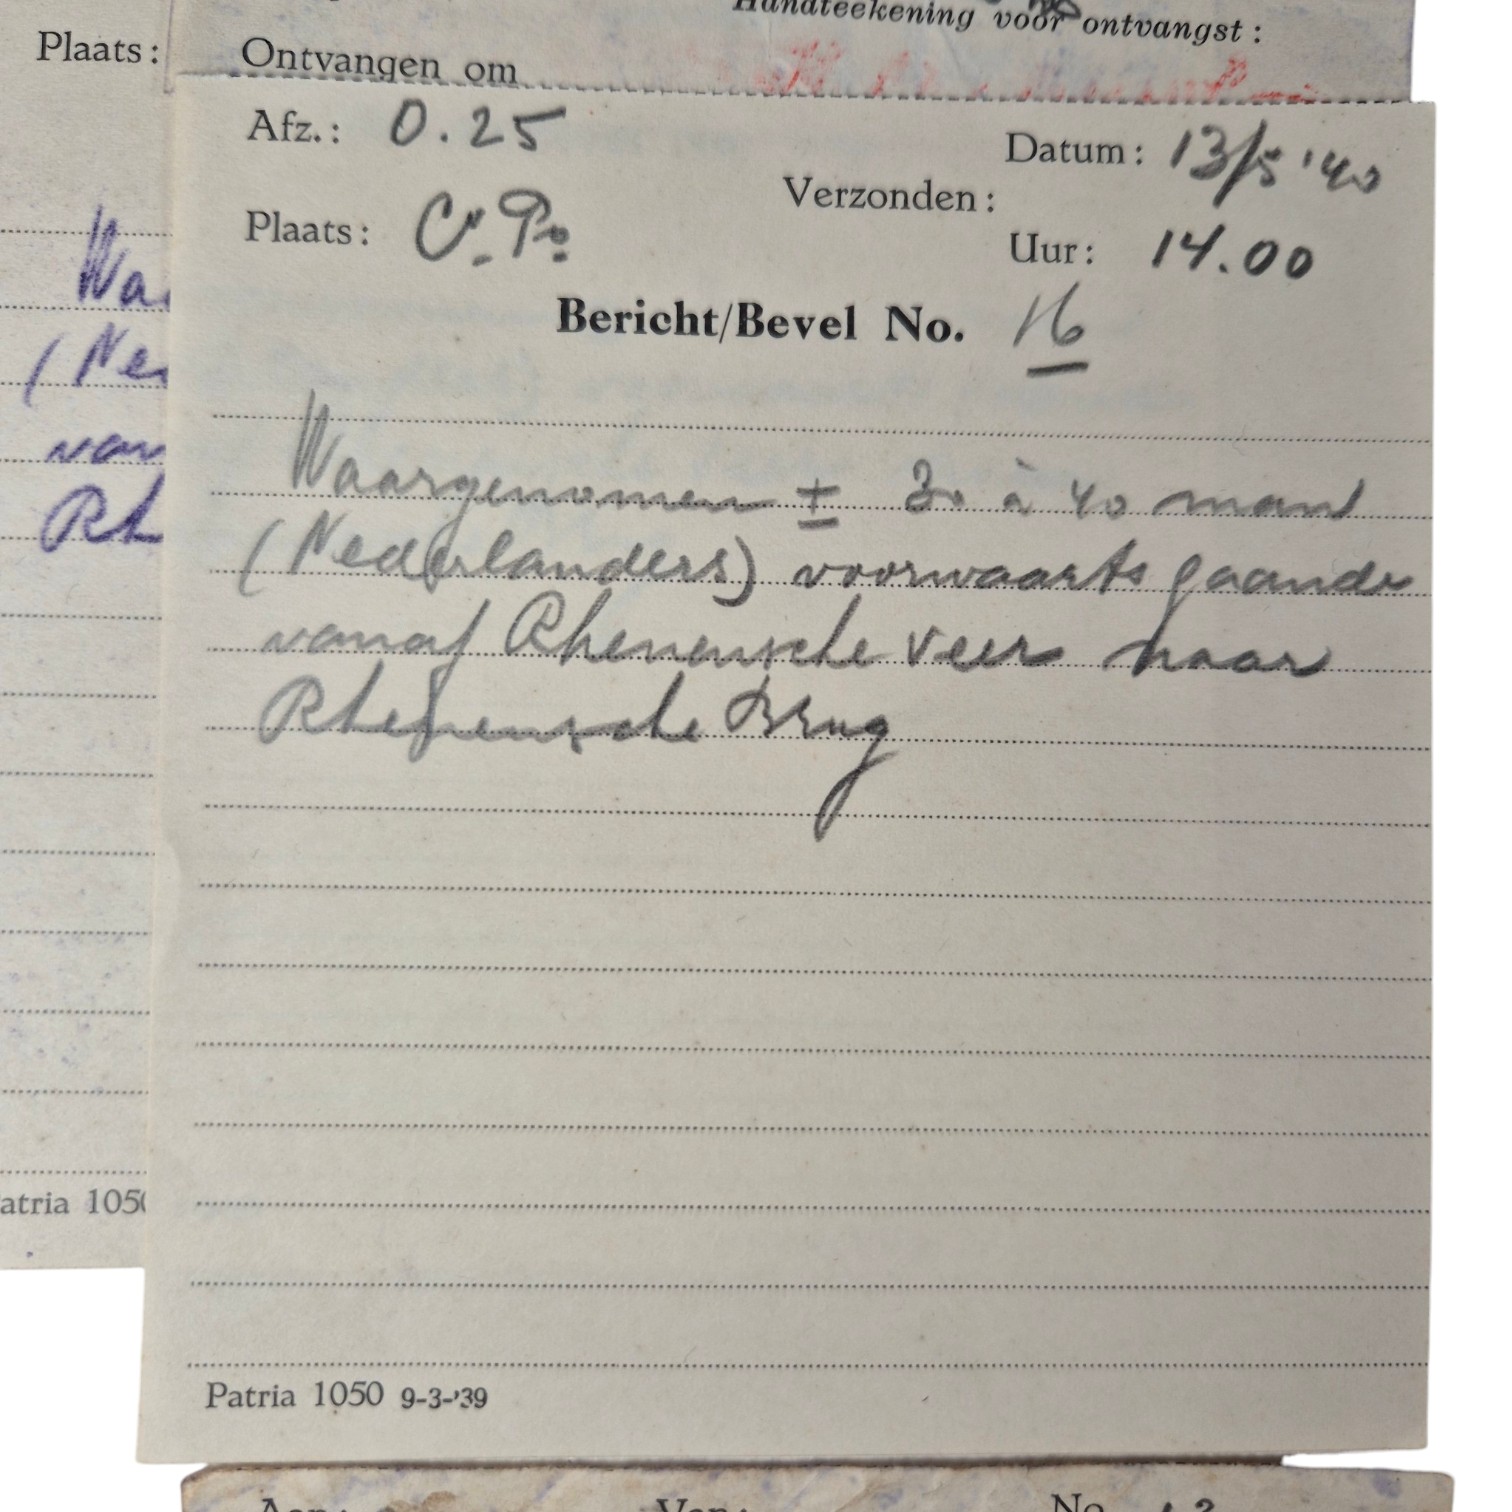 Handteekening voor ontvangst :
Plaats :
Ontvangen om
Afz. : O. 25
Datum : 13/5 '40
Verzonden :
Plaats : C.P.
Uur : 14.00
Bericht/Bevel No. 16
Waargenomen ± 30 à 40 man
(Nederlanders) voorwaarts gaande
vanaf Rhenensche veer naar
Rhenensche Brug
Patria 1050 9-3-'39
Waa
(Ne
van
Rh
atria 1050
Aan : Van : No.